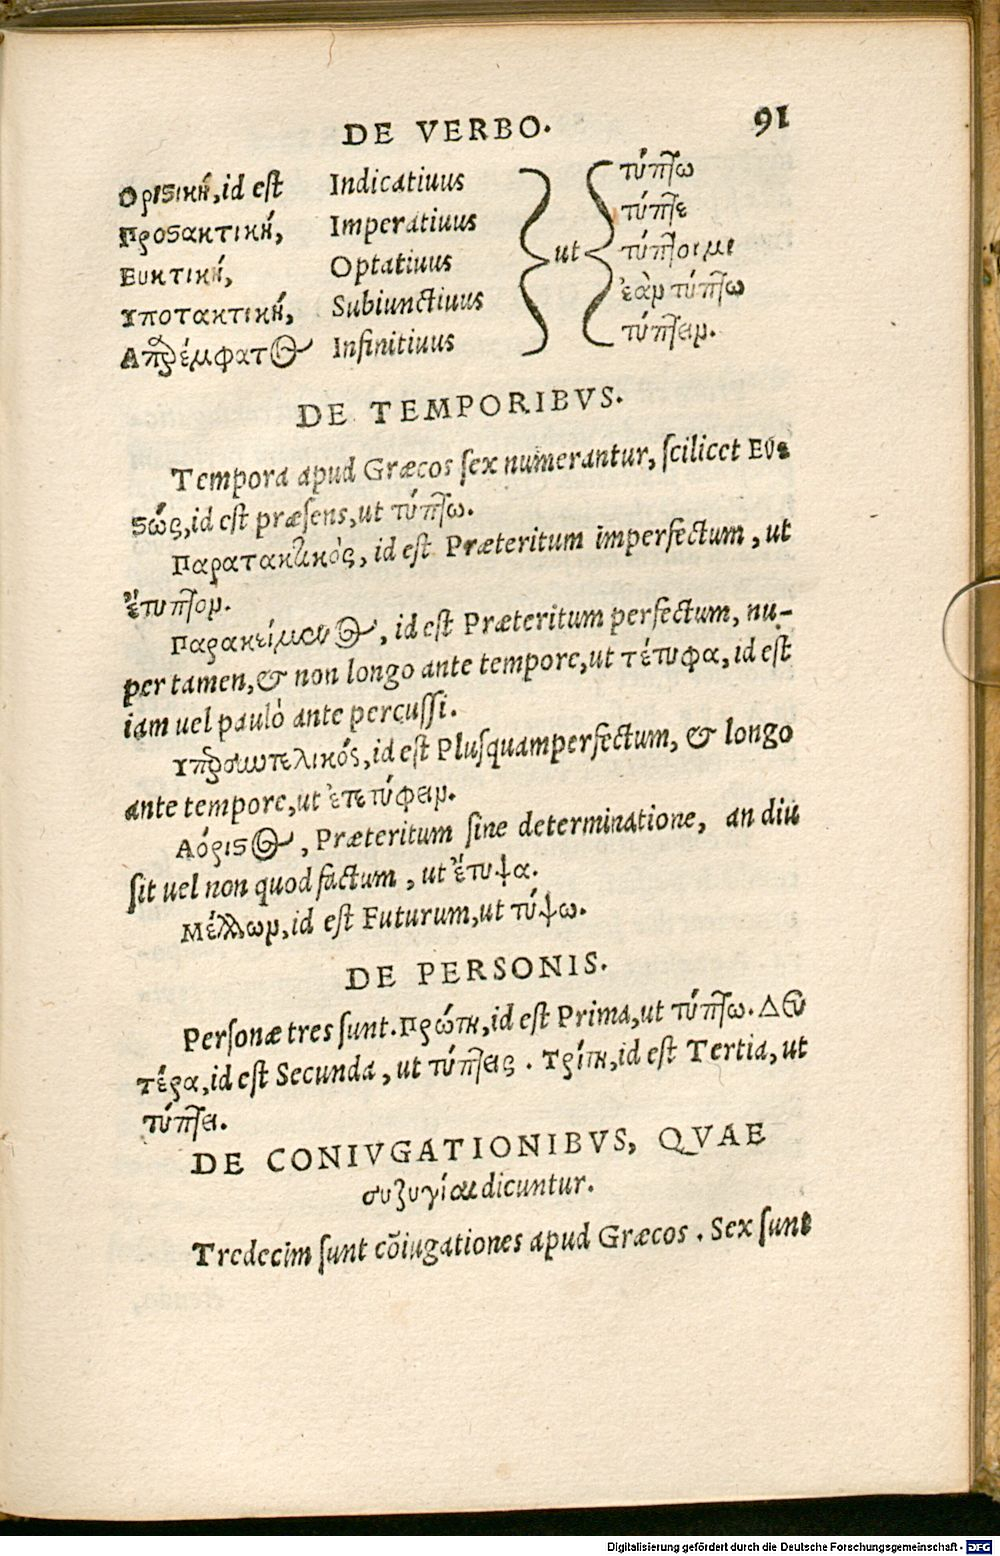 DE VERBO. 91
Οριστική, id est Indicatiuus } ut { τύπτω
Προστακτική, Imperatiuus τύπτε
Ευκτική, Optatiuus τύπτοιμι
Υποτακτική, Subiunctiuus ἐὰν τύπτω
Απαρέμφατος Infinitiuus τύπτειν.
DE TEMPORIBVS.
Tempora apud Græcos ſex numerantur, ſcilicet Ενε
στώς, id eſt præſens, ut τύπτω.
Παρατακτικὸς, id eſt Præteritum imperfectum, ut
ἔτυπτον.
Παρακείμενος, id eſt Præteritum perfectum, nu-
per tamen, & non longo ante tempore, ut τέτυφα, id eſt
iam uel pauló ante percuſſi.
Υπερσυντελικός, id eſt Pluſquamperfectum, & longo
ante tempore, ut ἐτετύφειν.
Αόριστος, Præteritum ſine determinatione, an diu
ſit uel non quod factum, ut ἔτυψα.
Μέλλων, id eſt Futurum, ut τύψω.
DE PERSONIS.
Perſonæ tres ſunt. Πρώτη, id eſt Prima, ut τύπτω. Δευ
τέρα, id eſt Secunda, ut τύπτεις. Τρίτη, id eſt Tertia, ut
τύπτει.
DE CONIVGATIONIBVS, QVAE
συζυγίαι dicuntur.
Tredecim ſunt cõiugationes apud Græcos. Sex ſunt
Digitalisierung gefördert durch die Deutsche Forschungsgemeinschaft - DFG